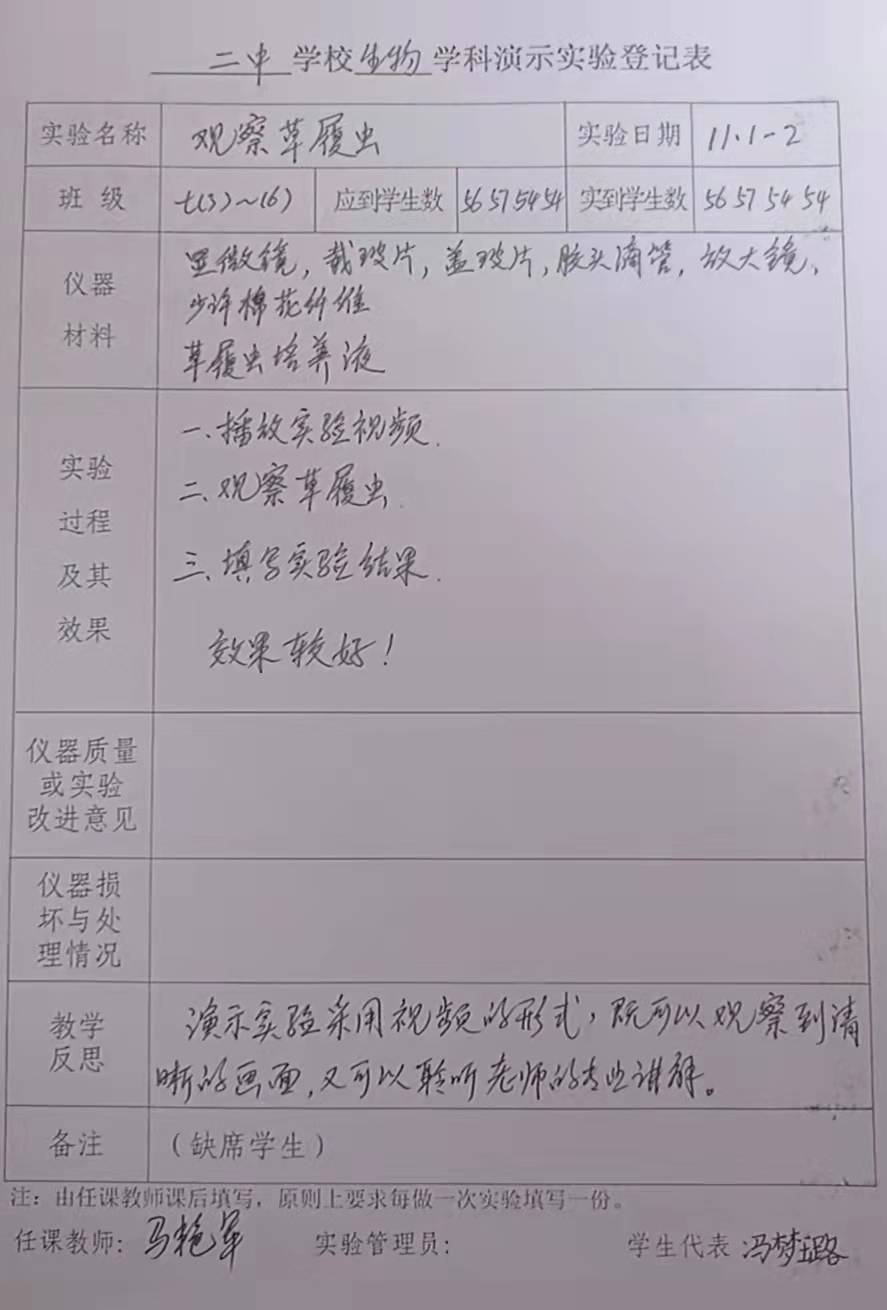 二中 学校 生物 学科演示实验登记表
实验名称 观察草履虫 实验日期 11.1-2
班 级 七(3)~(6) 应到学生数 56 57 54 54 实到学生数 56 57 54 54
仪器
材料
显微镜，载玻片，盖玻片，胶头滴管，放大镜、
少许棉花纤维
草履虫培养液
实验
过程
及其
效果
一、播放实验视频.
二、观察草履虫.
三、填写实验结果.
效果较好！
仪器质量
或实验
改进意见
仪器损
坏与处
理情况
教学
反思
演示实验采用视频的形式，既可以观察到清
晰的画面，又可以聆听老师的专业讲解。
备注 （缺席学生）
注：由任课教师课后填写，原则上要求每做一次实验填写一份。
任课教师：马艳军 实验管理员： 学生代表 冯梦璐